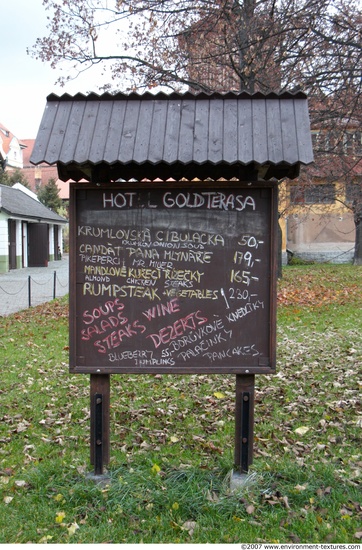 HOT L GOLDTERASA
KRUMLOVSKÁ CIBULAČKA 50,-
KRUMLOV ONION SOUP
CANDÁT PANA MLYNÁŘE 179,-
PIKEPERCH MR MILLER
MANDLOVÉ KUŘECÍ ŘÍZEČKY 165,-
ALMOND CHICKEN STEAKS
RUMPSTEAK + VEGETABLES 230,-
SOUPS
SALADS WINE
STEAKS DEZERTS
BORŮVKOVÉ KNEDLÍKY
BLUEBERRY PALAČINKY
PANCAKES
©2007 www.environment-textures.com